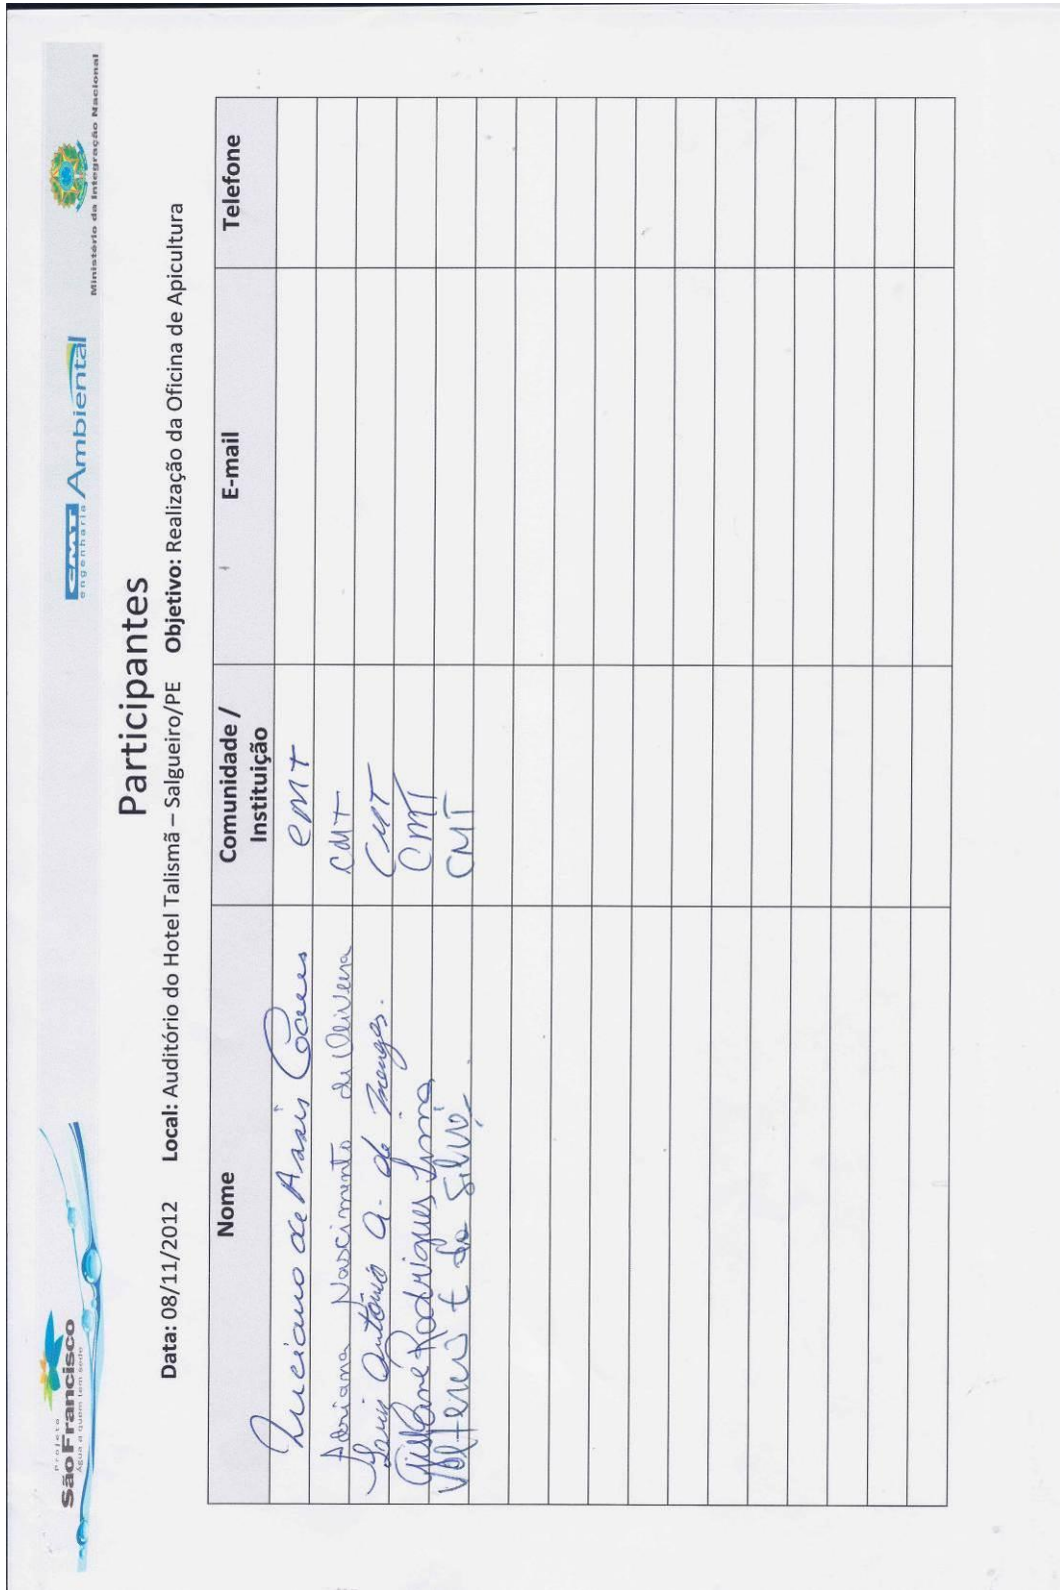 Projeto
São Francisco
Água a quem tem sede
CMT
engenharia Ambiental
Ministério da Integração Nacional
Participantes
Data: 08/11/2012 Local: Auditório do Hotel Talismã – Salgueiro/PE Objetivo: Realização da Oficina de Apicultura
Nome Comunidade / Instituição E-mail Telefone
Luciano de Assis CMT
Adriana Nascimento de Oliveira CMT
Antônio A. de CMT
Gislane Rodrigues Lima CMT
da Silva CMT